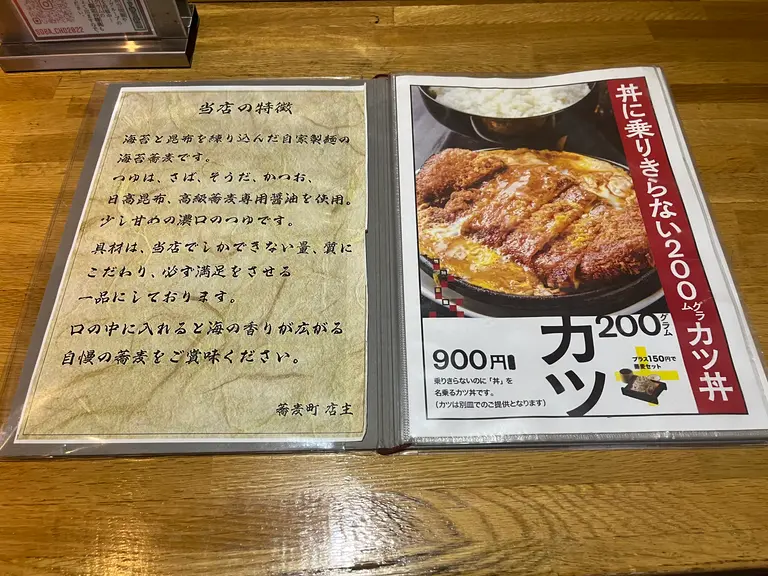 SOBA_CHO2022
当店の特徴
海苔と昆布を練り込んだ自家製麺の
海苔蕎麦です。
つゆは、さば、そうだ、かつお、
日高昆布、高級蕎麦専用醤油を使用。
少し甘めの濃口のつゆです。
具材は、当店でしかできない量、質に
こだわり、必ず満足をさせる
一品にしております。
口の中に入れると海の香りが広がる
自慢の蕎麦をご賞味ください。
蕎麦町 店主
丼に乗りきらない200グラムカツ丼
200グラム
カツ
900円
乗りきらないのに「丼」を
名乗るカツ丼です。
(カツは別皿でのご提供となります)
プラス150円で
蕎麦セット